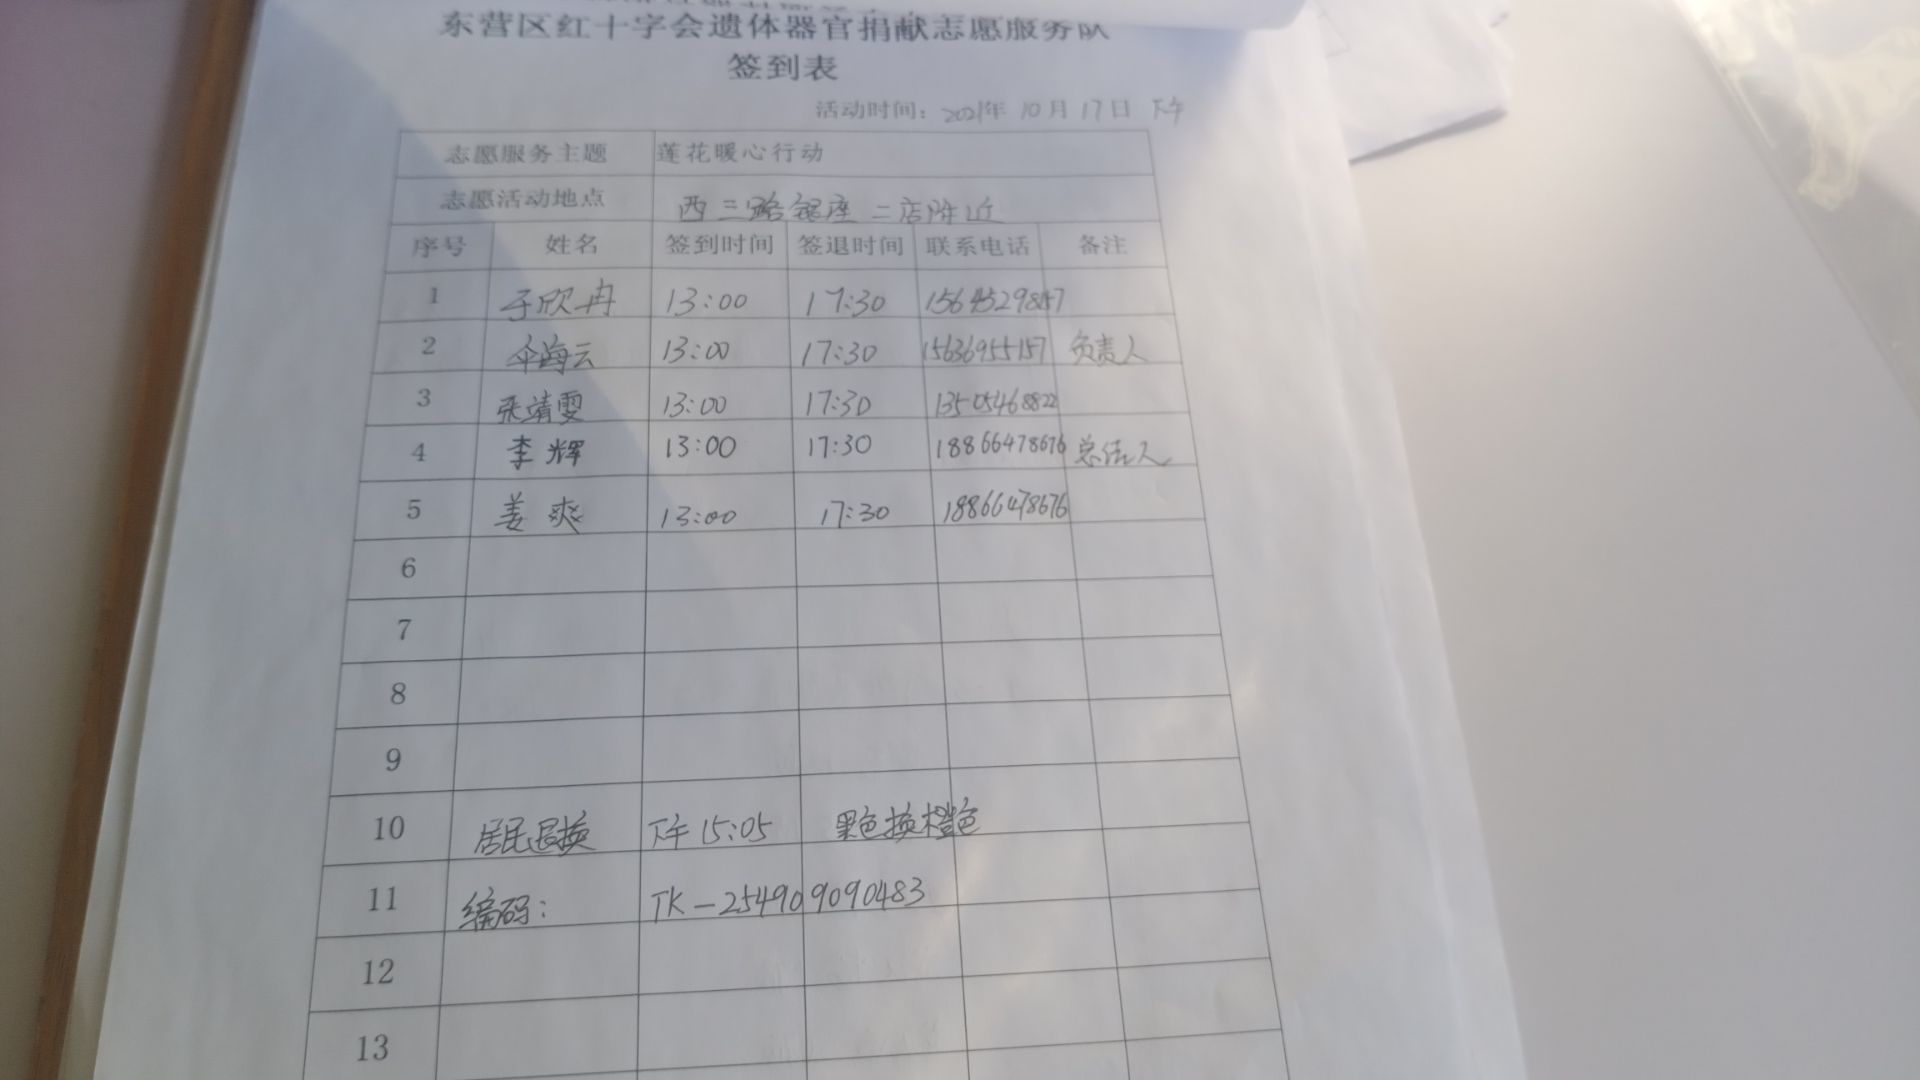 东营区红十字会遗体器官捐献志愿服务队
签到表
活动时间：2021年 10月 17日 下午
志愿服务主题 莲花暖心行动
志愿活动地点 西三路银座二店附近
序号 姓名 签到时间 签退时间 联系电话 备注
1 于欣冉 13:00 17:30
2 伞海云 13:00 17:30 15636955157 负责人
3 张靖雯 13:00 17:30 13505468822
4 李辉 13:00 17:30 18866478676
5 姜爽 13:00 17:30 18866478676
6
7
8
9
10 居民退换 下午 15:05 黑色换橙色
11 编码： TK-254909090483
12
13